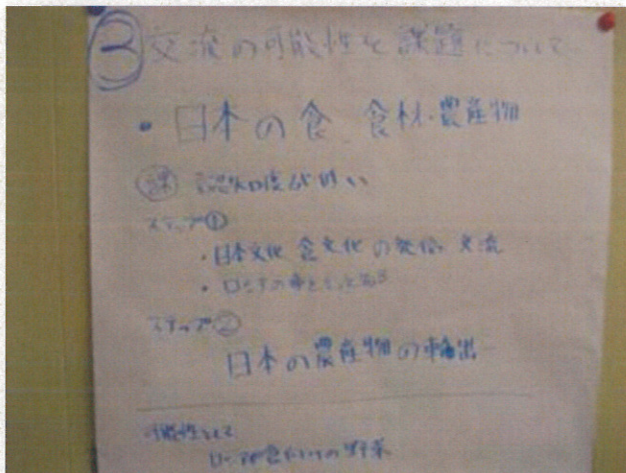 ③交流の可能性と課題について
・日本の食 食材・農産物
課 認知度が低い
ステップ①
・日本文化 食文化の発信 交流
・ロシアの
ステップ②
日本の農産物の輸出
可能性として
の野菜